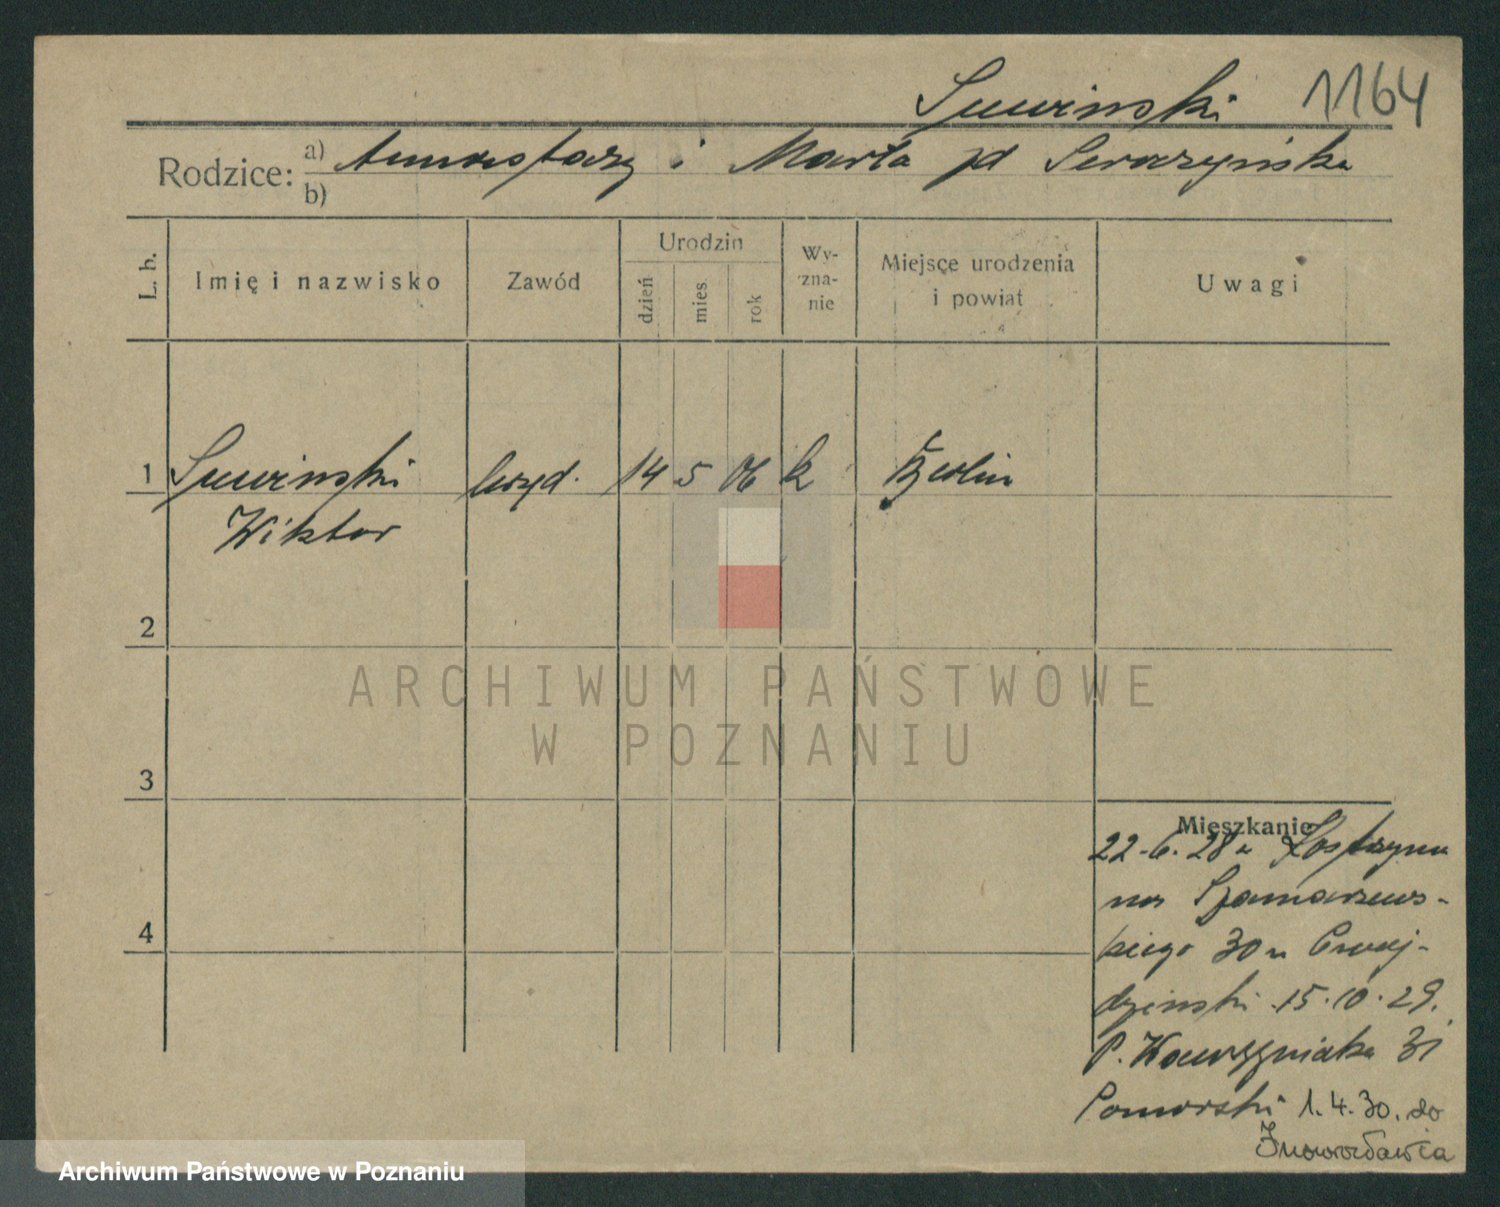 Suwinski 1164
Rodzice: a) Anastazy i Marta zd Seraszyńska
b)
L. b. Imię i nazwisko Zawód Urodzin dzień mies rok Wy-zna-nie Miejsce urodzenia i powiat Uwagi
1 Suwinski urzęd. 14 5 06 k Berlin
Wiktor
2
3
4
Mieszkanie
22.6.28 z Kostrzyna
na Szamarzews-
kiego 30 u
15.10.29.
P. Wawrzyniaka 31
Pomorski 1.4.30. do
Inowrocławia
ARCHIWUM PAŃSTWOWE
W POZNANIU
Archiwum Państwowe w Poznaniu